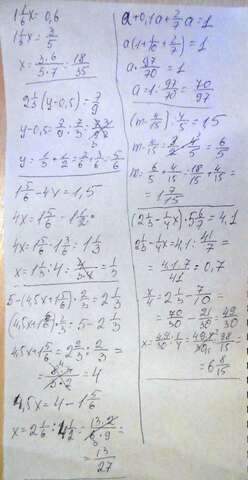 1 1/6 x = 0,6
1 1/6 x = 3/5
x = 3·6/5·7 = 18/35
2 1/3 (y-0,5) = 7/9
y-0,5 = 7/9 : 7/3 =
y = 1/3 + 1/2 = 2/6 + 3/6 = 5/6
1 5/6 - 4x = 1,5
4x = 1 5/6 - 1 1/2
4x = 1 5/6 - 1 3/6 = 1 1/3
x = 1 1/3 : 4 = = 1/3
5-(4,5x+1 5/6) · 2/3 = 2 1/3
: 2/3 = 5 - 2 1/3
4,5x+1 5/6 = 2 2/3 : 2/3 =
= 8·3/3·2 = 4
4,5x = 4 - 1 5/6
x = 2 1/6 : 4 1/2 = 13·2/6·9 =
= 13/27
a+0,1a+2/7 a = 1
a(1+1/10+2/7) = 1
a · 97/70 = 1
a = 1 : 97/70 = 70/97
: 4/5 = 15
= 6/5
m = 6/5 + 4/15 = 18/15 + 4/15 =
= 1 7/15
(2 1/3 - 1/4 x) · 5 6/7 = 4,1
2 1/3 - 1/4 x = 4,1 : 41/7 =
= 4,1·7/41 = 0,7
x/4 = 2 1/3 - 7/10 =
= 70/30 - 21/30 = 49/30
x = 49/30 : 1/4 = = 98/15 =
= 6 8/15